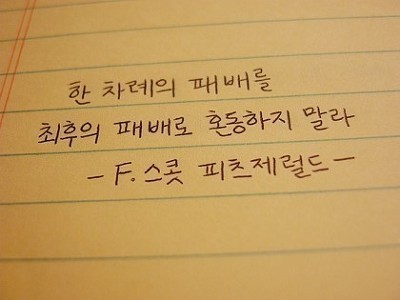 한 차례의 패배를
최후의 패배로 혼동하지 말라
- F. 스콧 피츠제럴드 -